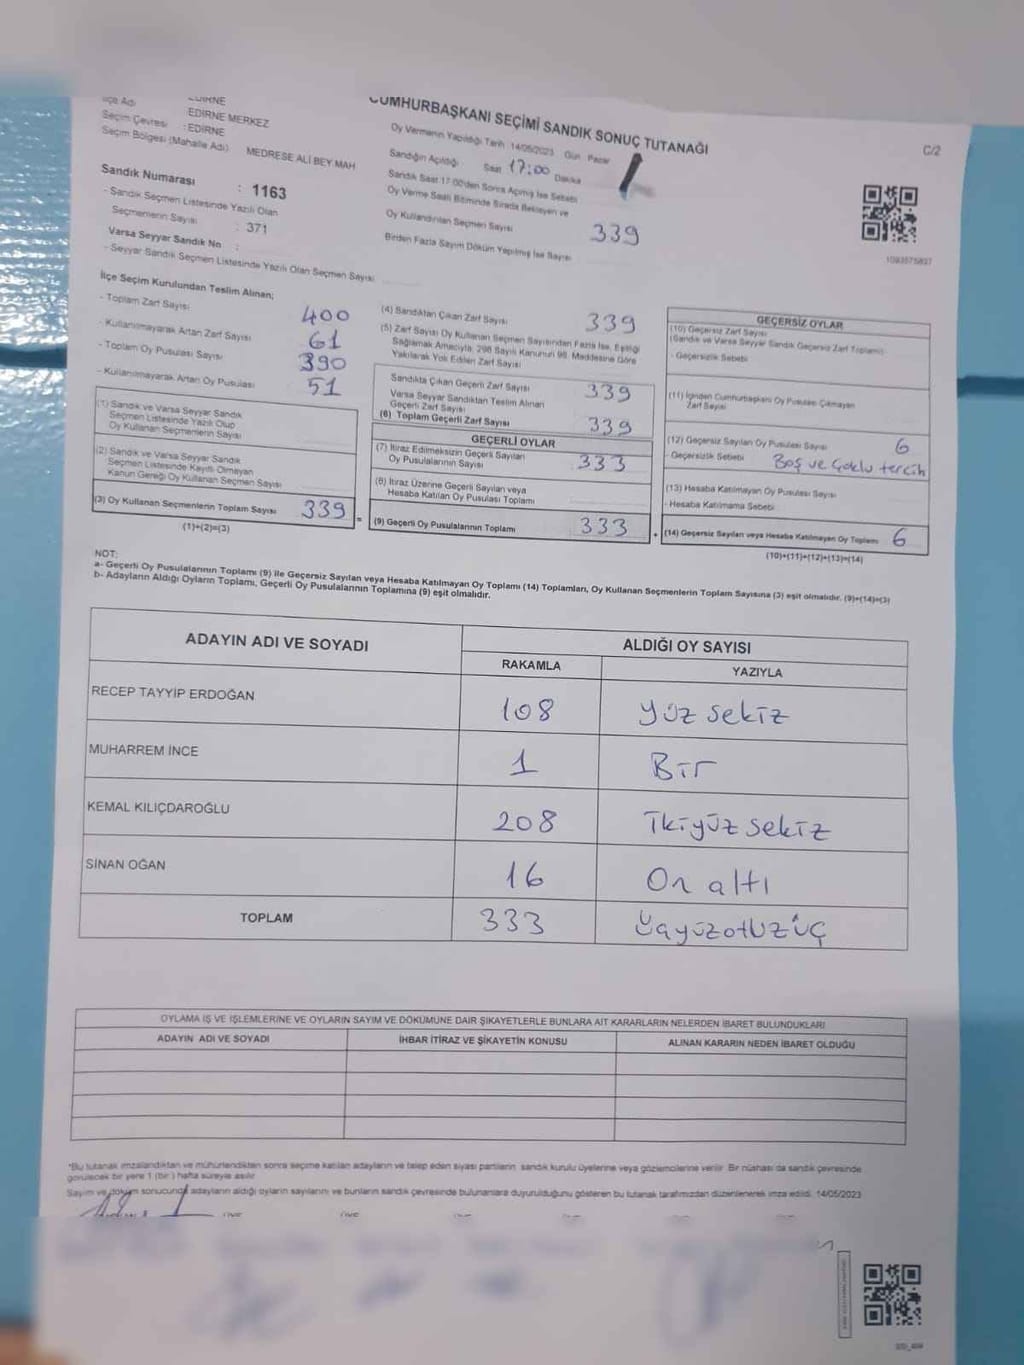 CUMHURBAŞKANI SEÇİMİ SANDIK SONUÇ TUTANAĞI
C/2
İlçe Adı : EDİRNE MERKEZ
Seçim Çevresi : EDİRNE
Seçim Bölgesi (Mahalle Adı) MEDRESE ALİ BEY MAH
Sandık Numarası : 1163
- Sandık Seçmen Listesinde Yazılı Olan
Seçmenlerin Sayısı : 371
Varsa Seyyar Sandık No :
- Seyyar Sandık Seçmen Listesinde Yazılı Olan Seçmen Sayısı
Oy Vermenin Yapıldığı Tarih 14/05/2023 Gün Pazar
Sandığın Açıldığı Saat 17:00 Dakika
Sandık Saat 17:00'den Sonra Açılmış İse Sebebi
Oy Verme Saati Bitiminde Sırada Bekleyen ve
Oy Kullandırılan Seçmen Sayısı 339
Birden Fazla Sayım Döküm Yapılmış İse Sayısı
1093575837
İlçe Seçim Kurulundan Teslim Alınan;
- Toplam Zarf Sayısı 400
- Kullanılmayarak Artan Zarf Sayısı 61
- Toplam Oy Pusulası Sayısı 390
- Kullanılmayarak Artan Oy Pusulası 51
(1) Sandık ve Varsa Seyyar Sandık
Seçmen Listesinde Yazılı Olup
Oy Kullanan Seçmenlerin Sayısı
(2) Sandık ve Varsa Seyyar Sandık
Seçmen Listesinde Kayıtlı Olmayan
Kanun Gereği Oy Kullanan Seçmen Sayısı
(3) Oy Kullanan Seçmenlerin Toplam Sayısı 339
(1)+(2)=(3)
(4) Sandıktan Çıkan Zarf Sayısı 339
(5) Zarf Sayısı Oy Kullanan Seçmen Sayısından Fazla İse, Eşitliği
Sağlamak Amacıyla, 298 Sayılı Kanunun 98. Maddesine Göre
Yakılarak Yok Edilen Zarf Sayısı
Sandıkta Çıkan Geçerli Zarf Sayısı 339
Varsa Seyyar Sandıktan Teslim Alınan
Geçerli Zarf Sayısı
(6) Toplam Geçerli Zarf Sayısı 339
GEÇERLİ OYLAR
(7) İtiraz Edilmeksizin Geçerli Sayılan
Oy Pusulalarının Sayısı 333
(8) İtiraz Üzerine Geçerli Sayılan veya
Hesaba Katılan Oy Pusulası Toplamı
(9) Geçerli Oy Pusulalarının Toplamı 333
GEÇERSİZ OYLAR
(10) Geçersiz Zarf Sayısı
(Sandık ve Varsa Seyyar Sandık Geçersiz Zarf Toplamı)
- Geçersizlik Sebebi
(11) İçinden Cumhurbaşkanı Oy Pusulası Çıkmayan
Zarf Sayısı
(12) Geçersiz Sayılan Oy Pusulası Sayısı 6
- Geçersizlik Sebebi Boş ve Çoklu tercih
(13) Hesaba Katılmayan Oy Pusulası Sayısı
- Hesaba Katılmama Sebebi
(14) Geçersiz Sayılan veya Hesaba Katılmayan Oy Toplamı 6
(10)+(11)+(12)+(13)=(14)
NOT:
a- Geçerli Oy Pusulalarının Toplamı (9) ile Geçersiz Sayılan veya Hesaba Katılmayan Oy Toplamı (14) Toplamları, Oy Kullanan Seçmenlerin Toplam Sayısına (3) eşit olmalıdır. (9)+(14)=(3)
b- Adayların Aldığı Oyların Toplamı, Geçerli Oy Pusulalarının Toplamına (9) eşit olmalıdır.
ADAYIN ADI VE SOYADI ALDIĞI OY SAYISI
RAKAMLA YAZIYLA
RECEP TAYYİP ERDOĞAN 108 Yüz sekiz
MUHARREM İNCE 1 Bir
KEMAL KILIÇDAROĞLU 208 İkiyüz sekiz
SİNAN OĞAN 16 On altı
TOPLAM 333 Üçyüzotuzüç
OYLAMA İŞ VE İŞLEMLERİNE VE OYLARIN SAYIM VE DÖKÜMÜNE DAİR ŞİKAYETLERLE BUNLARA AİT KARARLARIN NELERDEN İBARET BULUNDUKLARI
ADAYIN ADI VE SOYADI İHBAR İTİRAZ VE ŞİKAYETİN KONUSU ALINAN KARARIN NEDEN İBARET OLDUĞU
*Bu tutanak imzalandıktan ve mühürlendikten sonra seçime katılan adayların ve talep eden siyasi partilerin sandık kurulu üyelerine veya gözlemcilerine verilir. Bir nüshası da sandık çevresinde
görülecek bir yere 1 (bir) hafta süreyle asılır.
Sayım ve döküm sonucunda adayların aldığı oyların sayılarını ve bunların sandık çevresinde bulunanlara duyurulduğunu gösteren bu tutanak tarafımızdan düzenlenerek imza edildi. 14/05/2023